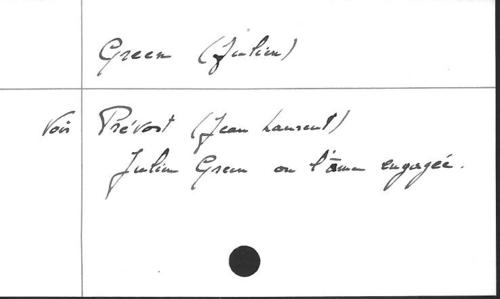 Green (Julien)
Voir Prévost (Jean Laurent)
Julien Green ou l'âme engagée.